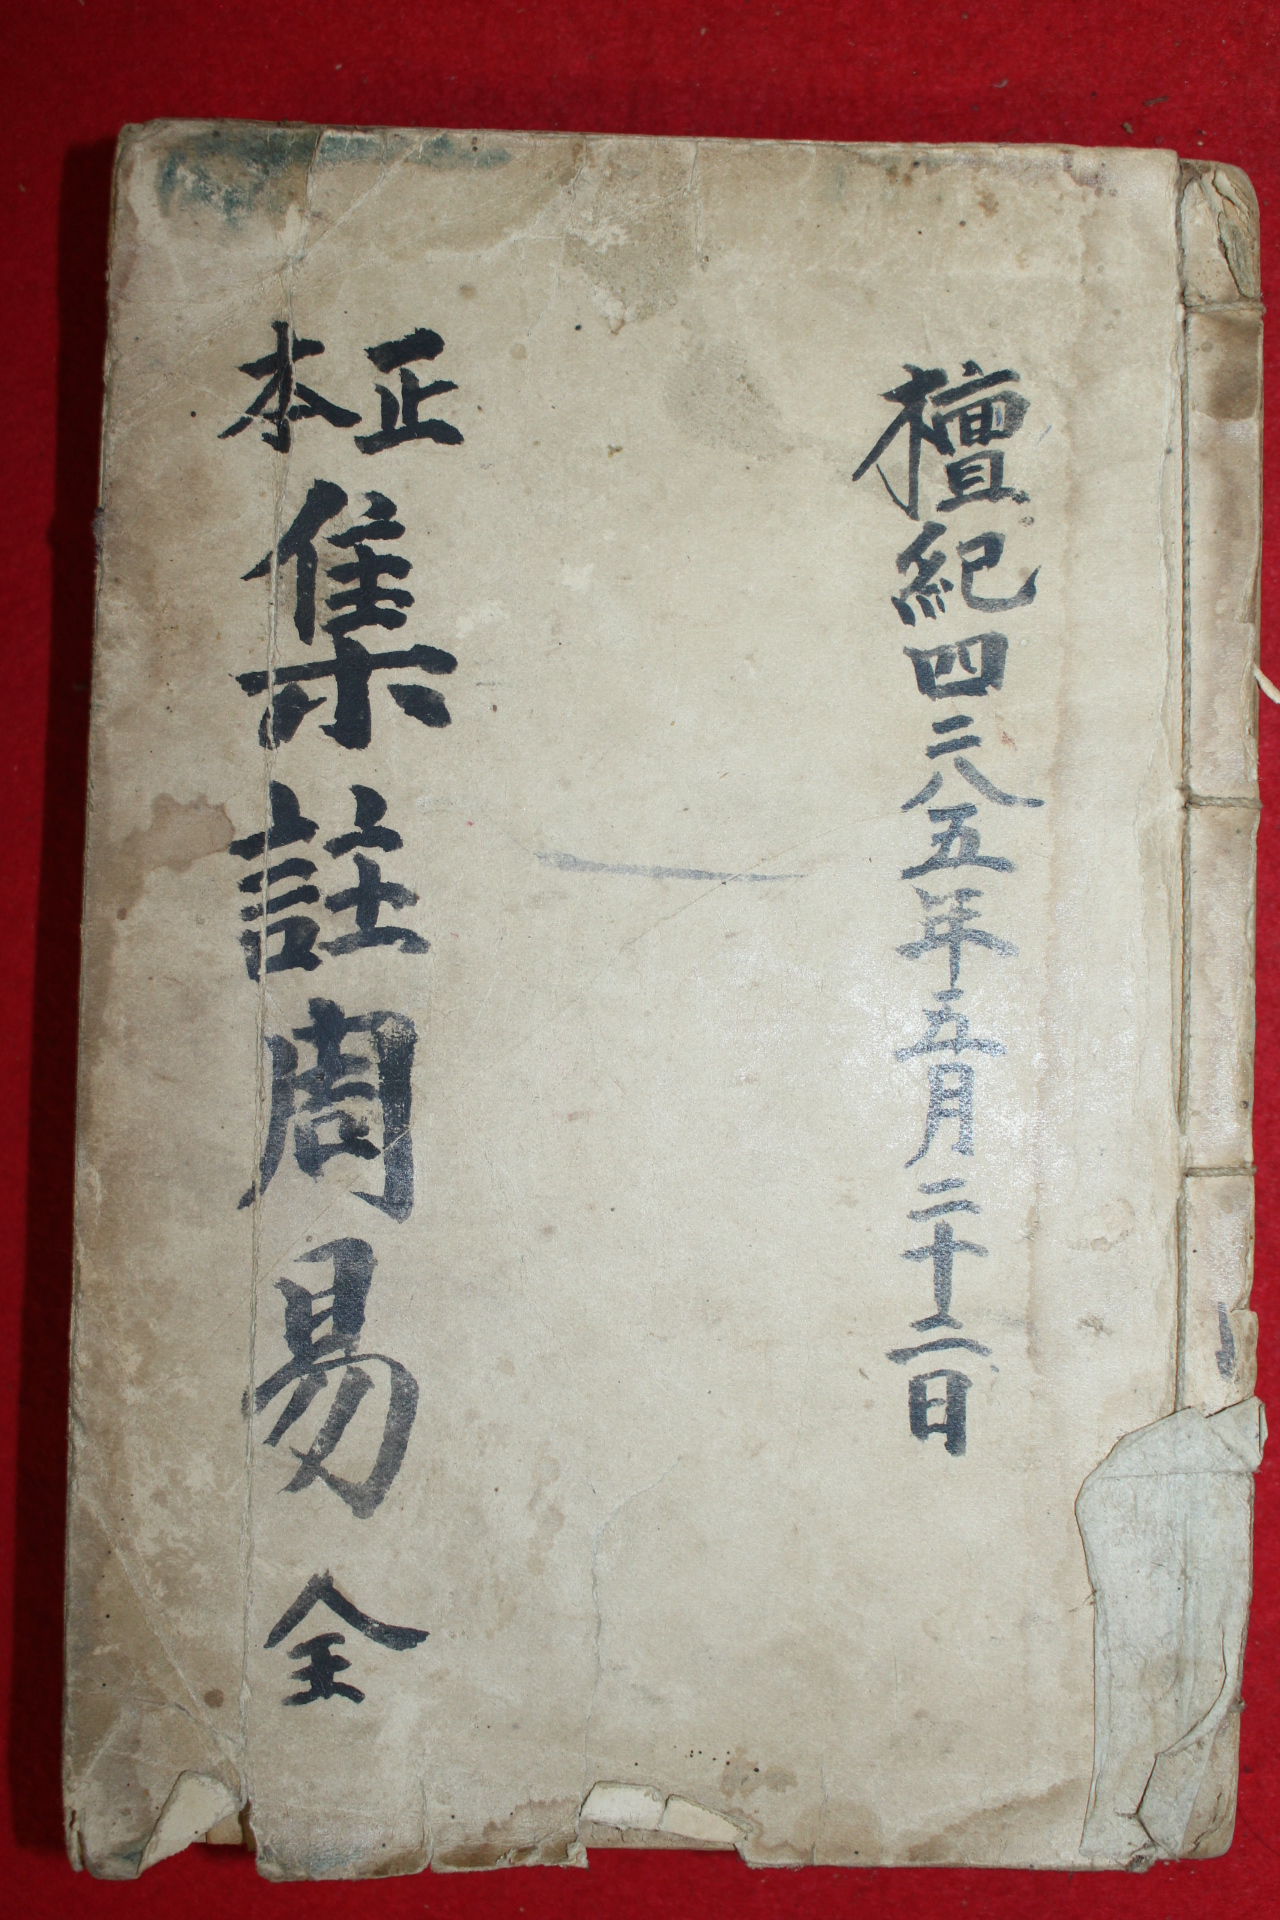 檀紀四二八五年五月二十二日
正本集註周易 全